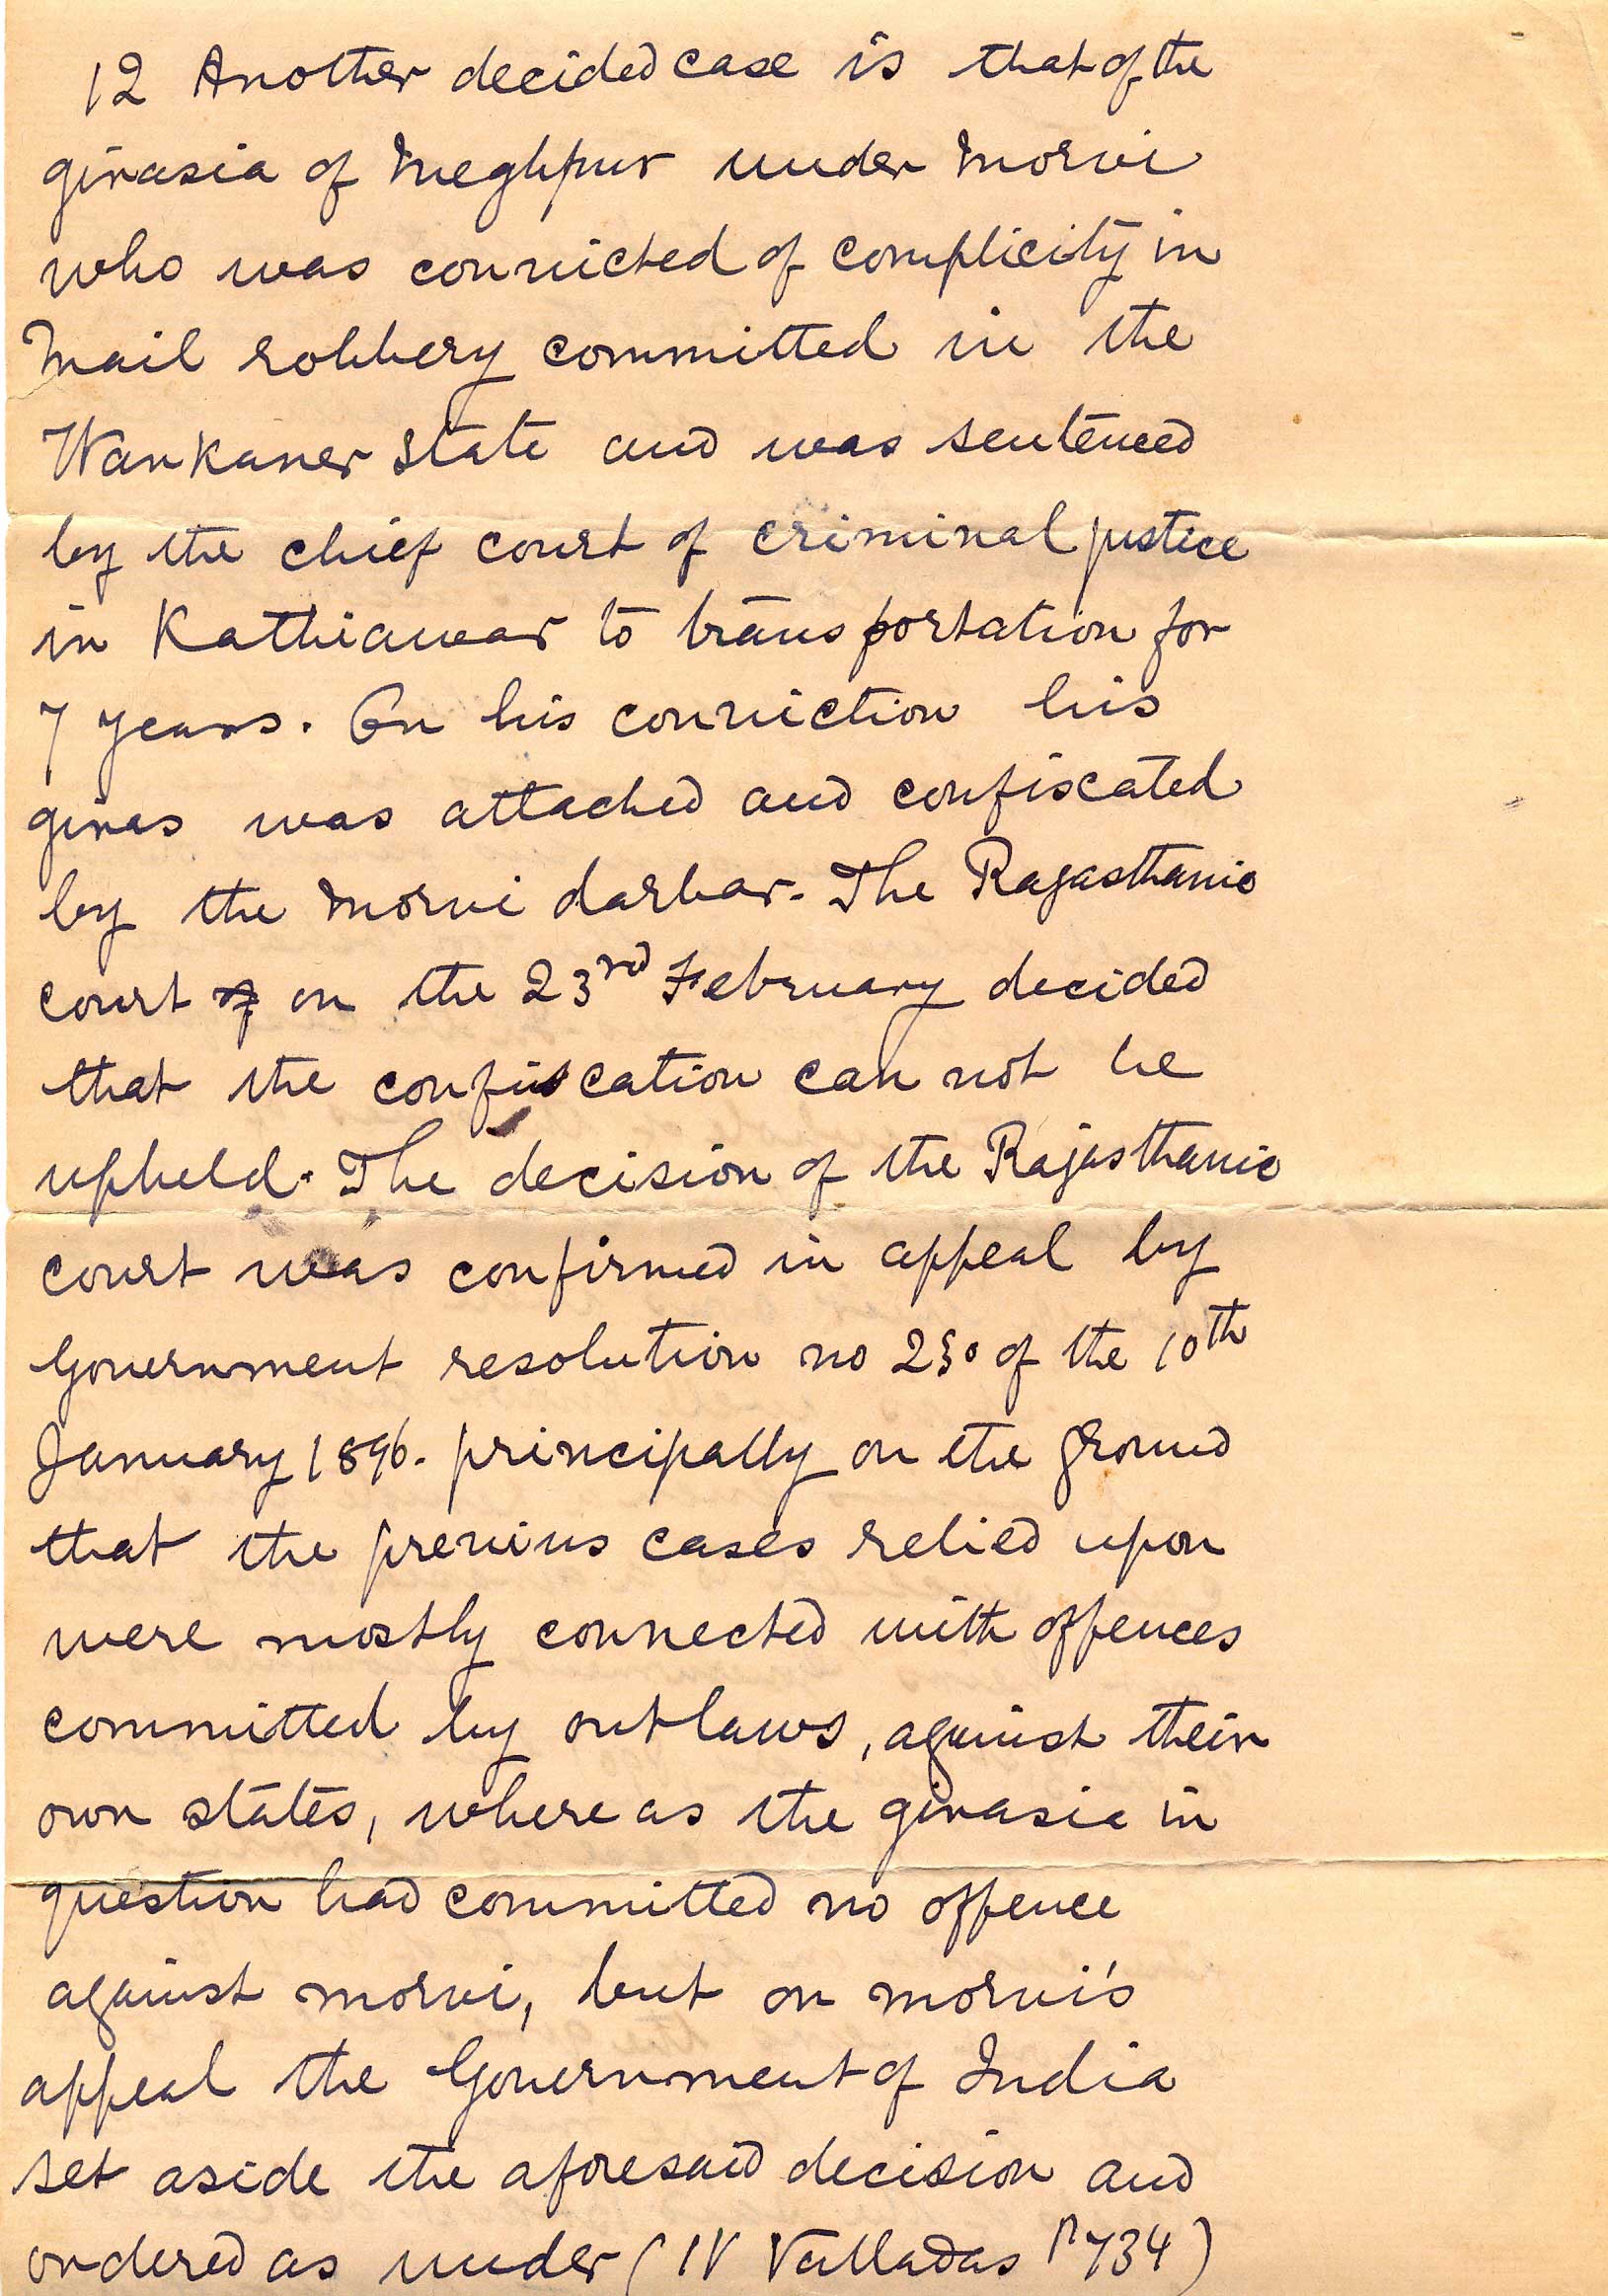 12 Another decided case is that of the
girasia of Meghpur under Morvi
who was convicted of complicity in
Mail robbery committed in the
Wankaner State and was sentenced
by the chief court of criminal justice
in Kathiawar to transportation for
7 years. On his conviction his
giras was attached and confiscated
by the Morvi darbar. The Rajasthanic
court of on the 23rd February decided
that the confiscation can not be
upheld. The decision of the Rajasthanic
court was confirmed in appeal by
Government resolution no of the 10th
January 1896. principally on the ground
that the previus cases relied upon
were mostly connected with offences
committed by outlaws, against their
own states, where as the girasia in
question had committed no offence
against morvi, but on morvi's
appeal the Government of India
set aside the aforesaid decision and
ordered as under (IV Valladas P 734)